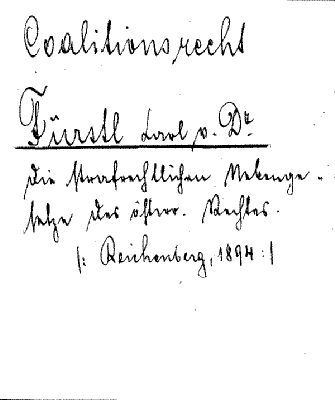 Coalitionsrecht
Fürstl Karl v. Dr
Die strafrechtlichen Nebenge-
setze des österr. Rechtes.
/: Reichenberg, 1894 :/